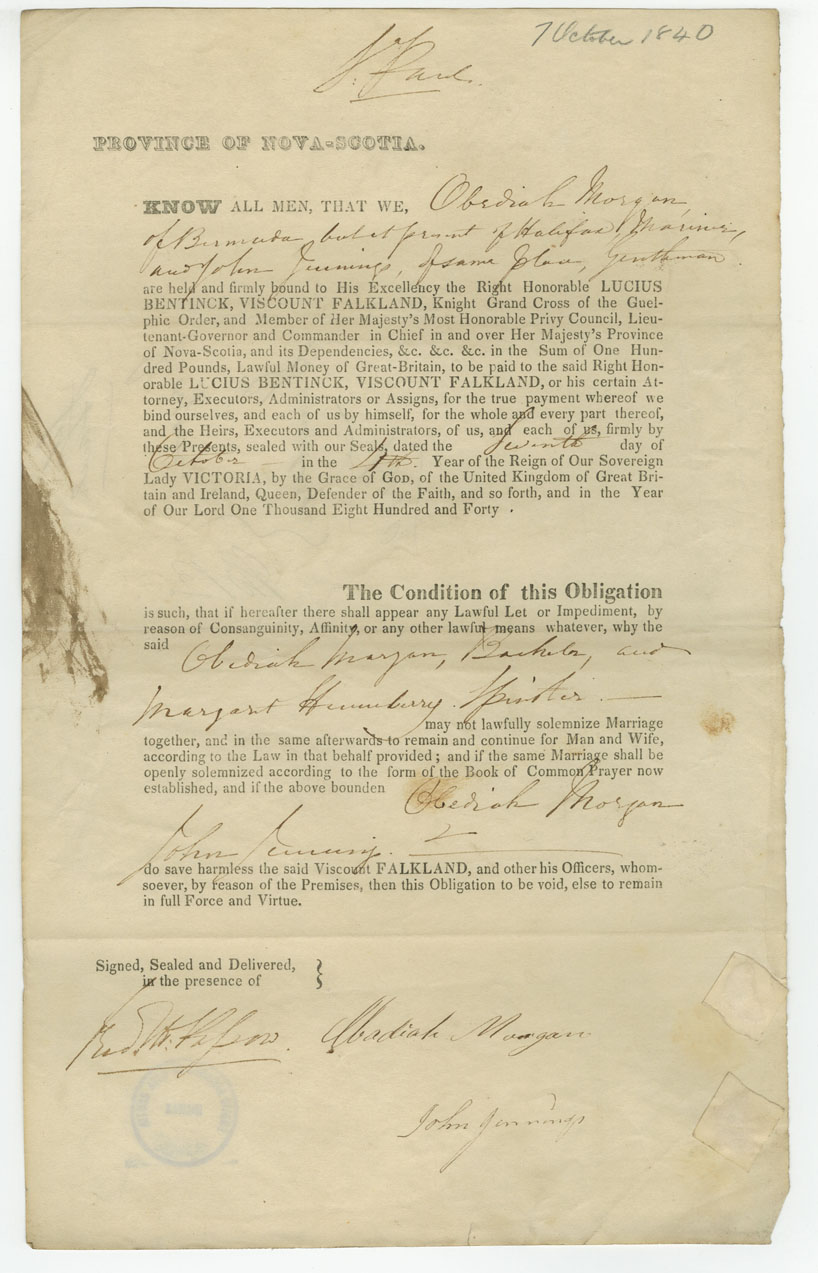 7 October 1840
St. Paul.
PROVINCE OF NOVA-SCOTIA.
KNOW ALL MEN, THAT WE, Obediah Morgan,
of Bermuda but at present of Halifax, Mariner,
and John Jennings, of same place, Gentleman
are held and firmly bound to His Excellency the Right Honorable LUCIUS
BENTINCK, VISCOUNT FALKLAND, Knight Grand Cross of the Guel-
phic Order, and Member of Her Majesty's Most Honorable Privy Council, Lieu-
tenant-Governor and Commander in Chief in and over Her Majesty's Province
of Nova-Scotia, and its Dependencies, &c. &c. &c. in the Sum of One Hun-
dred Pounds, Lawful Money of Great-Britain, to be paid to the said Right Hon-
orable LUCIUS BENTINCK, VISCOUNT FALKLAND, or his certain At-
torney, Executors, Administrators or Assigns, for the true payment whereof we
bind ourselves, and each of us by himself, for the whole and every part thereof,
and the Heirs, Executors and Administrators, of us, and each of us, firmly by
these Presents, sealed with our Seals, dated the Seventh day of
October in the 4th. Year of the Reign of Our Sovereign
Lady VICTORIA, by the Grace of GOD, of the United Kingdom of Great Bri-
tain and Ireland, Queen, Defender of the Faith, and so forth, and in the Year
of Our Lord One Thousand Eight Hundred and Forty .
The Condition of this Obligation
is such, that if hereafter there shall appear any Lawful Let or Impediment, by
reason of Consanguinity, Affinity, or any other lawful means whatever, why the
said Obediah Morgan, Bachelor, and
Margaret Spinster
may not lawfully solemnize Marriage
together, and in the same afterwards to remain and continue for Man and Wife,
according to the Law in that behalf provided; and if the same Marriage shall be
openly solemnized according to the form of the Book of Common Prayer now
established, and if the above bounden Obediah Morgan
John Jennings.
do save harmless the said Viscount FALKLAND, and other his Officers, whom-
soever, by reason of the Premises, then this Obligation to be void, else to remain
in full Force and Virtue.
Signed, Sealed and Delivered,
in the presence of
Obadiah Morgan
John Jennings